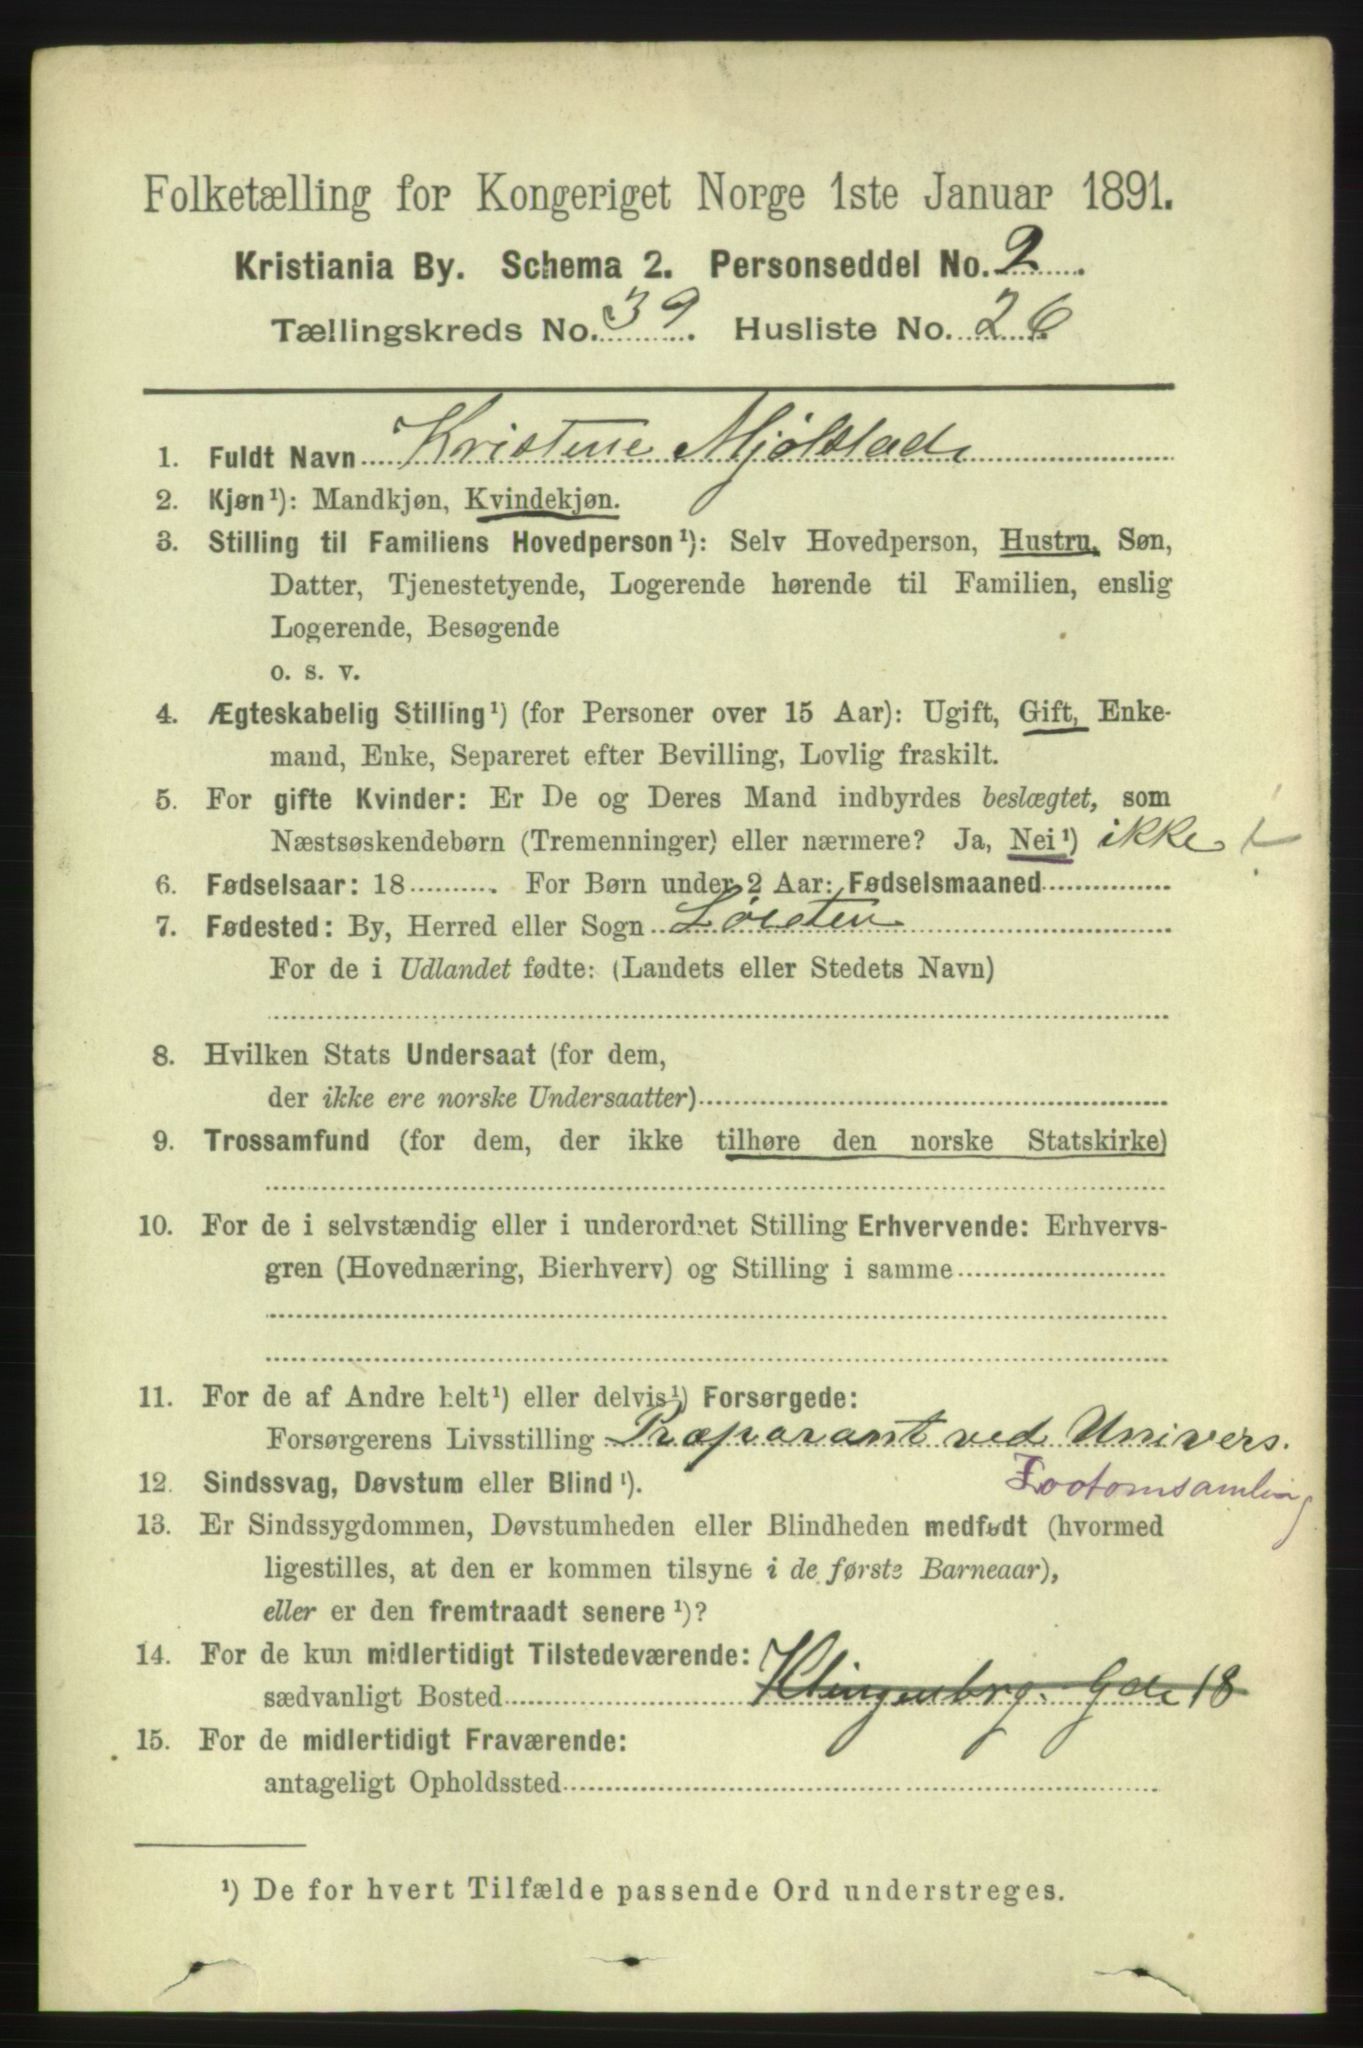 Folketælling for Kongeriget Norge 1ste Januar 1891.
Kristiania By. Schema 2. Personseddel No. 2.
Tællingskreds No. 39. Husliste No. 26
1. Fuldt Navn Kristene Mjølstad
2. Kjøn¹): Mandkjøn, Kvindekjøn.
3. Stilling til Familiens Hovedperson¹): Selv Hovedperson, Hustru, Søn,
Datter, Tjenestetyende, Logerende hørende til Familien, enslig
Logerende, Besøgende
o. s. v.
4. Ægteskabelig Stilling¹) (for Personer over 15 Aar): Ugift, Gift, Enke-
mand, Enke, Separeret efter Bevilling, Lovlig fraskilt.
5. For gifte Kvinder: Er De og Deres Mand indbyrdes beslægtet, som
Næstsøskendebørn (Tremenninger) eller nærmere? Ja, Nei¹) ikke
6. Fødselsaar: 18 . For Børn under 2 Aar: Fødselsmaaned
7. Fødested: By, Herred eller Sogn Løiten
For de i Udlandet fødte: (Landets eller Stedets Navn)
8. Hvilken Stats Undersaat (for dem,
der ikke ere norske Undersaatter)
9. Trossamfund (for dem, der ikke tilhøre den norske Statskirke)
10. For de i selvstændig eller i underordnet Stilling Erhvervende: Erhvervs-
gren (Hovednæring, Bierhverv) og Stilling i samme
11. For de af Andre helt¹) eller delvis¹) Forsørgede:
Forsørgerens Livsstilling Præparant ved Univers.
Zootomsamling
12. Sindssvag, Døvstum eller Blind¹).
13. Er Sindssygdommen, Døvstumheden eller Blindheden medfødt (hvormed
ligestilles, at den er kommen tilsyne i de første Barneaar),
eller er den fremtraadt senere¹)?
14. For de kun midlertidigt Tilstedeværende:
sædvanligt Bosted Klingenbrg. Gde 18
15. For de midlertidigt Fraværende:
antageligt Opholdssted
¹) De for hvert Tilfælde passende Ord understreges.